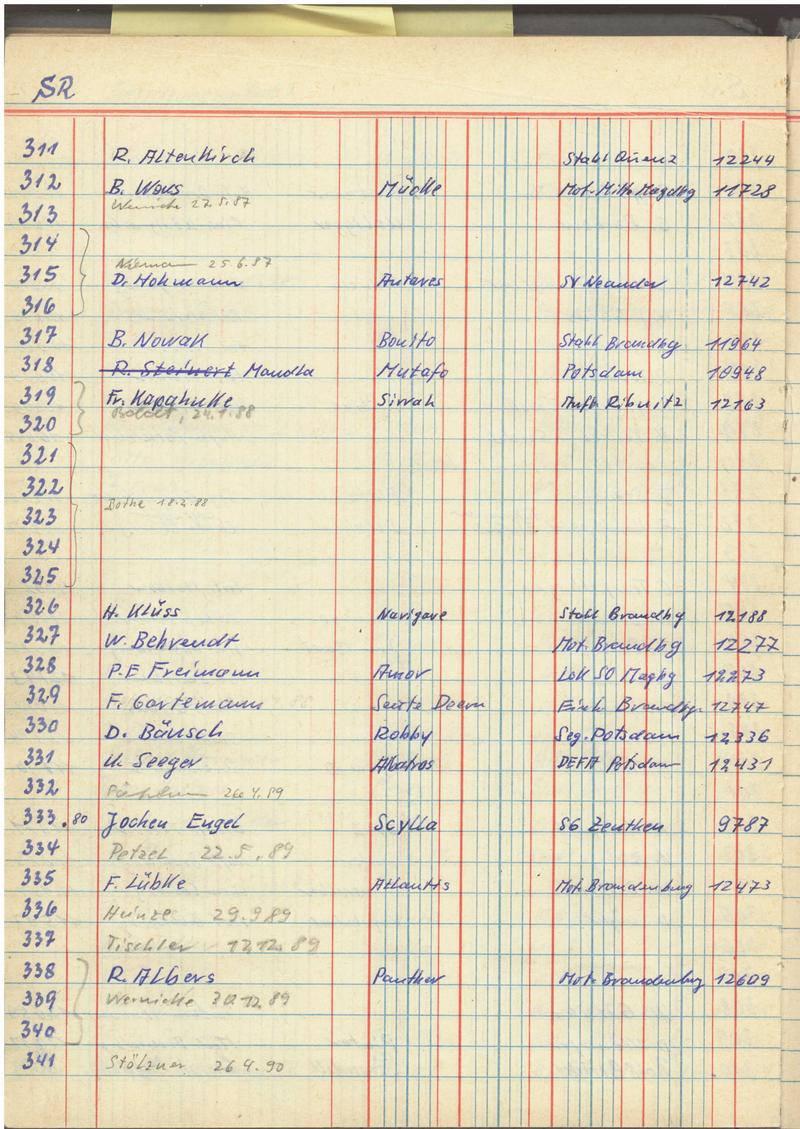 SR
311 R. Altenkirch Stahl Quenz 12244
312 B. Wons Mücke Mot. Mitte Magdbg 11728
Wernicke 27.5.87
313
314
25.6.87
315 D. Hohmann Antares SV Neander 12742
316
317 B. Nowak Bonito Stahl Brandbg 11964
318 R. Steinert Mandla Mutafo Potsdam 10948
319 Fr. Kapahnke Sirrah Aufb. Ribnitz 12163
Boldt, 24.1.88
320
321
322
Bothe 18.2.88
323
324
325
326 H. Klüss Navigare Stahl Brandbg 12188
327 W. Behrendt Mot. Brandbg 12277
328 P.E Freimann Amor Lok SO Magbg 12273
329 F. Gartemann Seute Deern Einh. Brandbg. 12747
330 D. Bänsch Robby Seg. Potsdam 12336
331 U. Seeger Albatros DEFA Potsdam 12431
332 26 4.89
333.80 Jochen Engel Scylla SG Zeuthen 9787
334 Petzel 22.5.89
335 F. Lübke Atlantis Mot. Brandenburg 12473
336 Heinze 29.9 89
337 Tischler 12.12.89
338 R. Albers Panther Mot. Brandenburg 12609
339 Wernicke 30.12.89
340
341 Stölzner 26 4.90